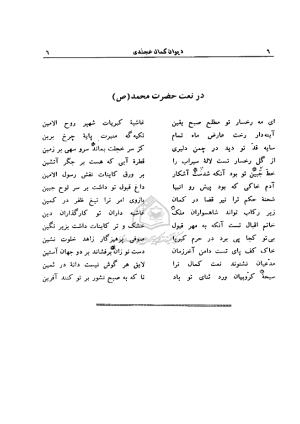 ۶ دیوان کمال خجندی ۶
در نعت حضرت محمد (ص)
ای مه رخسار تو مطلع صبح یقین غاشیهٔ کبریات شهپر روح الامین
آینه‌دار رخت عارض ماه تمام تکیه‌گه منبرت پایهٔ چرخ برین
سایه قد تو دید در چمن دلبری کز سر خجلت بماند سرو سهی بر زمین
از گل رخسار تست لالهٔ سیراب را قطرهٔ آبی که هست بر جگر آتشین
خط جبین تو بود آنکه شدست آشکار بر ورق کاینات نقش رسول الامین
آدم خاکی که بود پیش رو انبیا داغ قبول تو داشت بر سر لوح جبین
شحنهٔ حکم ترا تیر قضا در کمان بازوی امر ترا تیغ ظفر در کمین
زیر رکاب تواند شاهسواران ملک غاشیه داران تو کارگذاران دین
خاتم اقبال تست آنکه به مهر قبول خشک و تر کاینات داشت بزیر نگین
بی‌تو کجا پی برد در حرم کبریا صوفی پرهیزگار زاهد خلوت نشین
خاک کف پای تست دامن آخرزمان دست تو زان برفشاند بر دو جهان آستین
مدعیان نشنوند نعت کمال ترا لایق هر گوش نیست دانهٔ در ثمین
سبحهٔ کروبیان ورد ثنای تو باد تا که به صبح بر تو کند آفرین